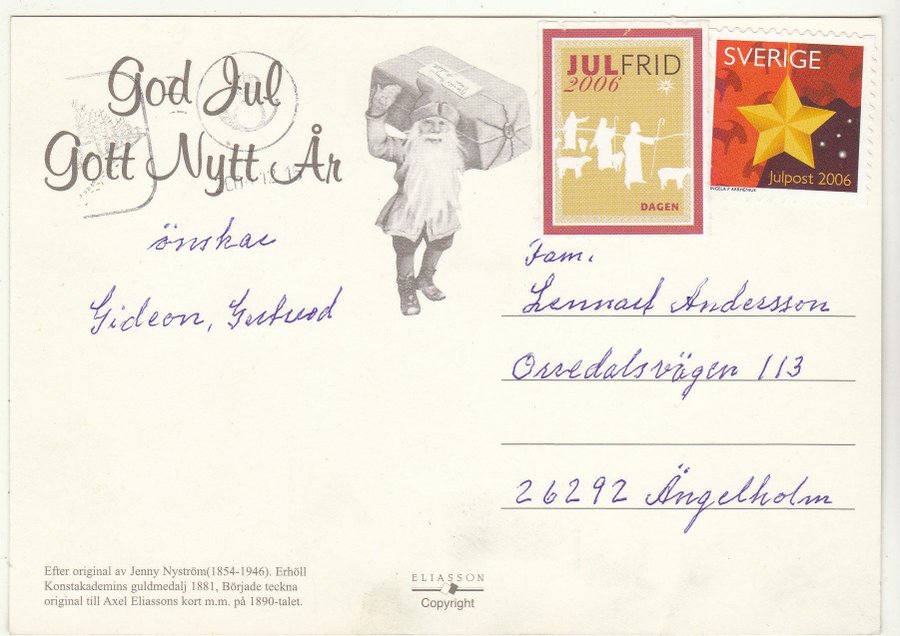 God Jul
Gott Nytt År
önskar
Gideon, Gertrud
JULFRID
2006
DAGEN
SVERIGE
Julpost 2006
INGELA P ARRHENIUS
Fam.
Lennart Andersson
Orredalsvägen 113
26292 Ängelholm
Efter original av Jenny Nyström(1854-1946). Erhöll
Konstakademins guldmedalj 1881, Började teckna
original till Axel Eliassons kort m.m. på 1890-talet.
ELIASSON
Copyright